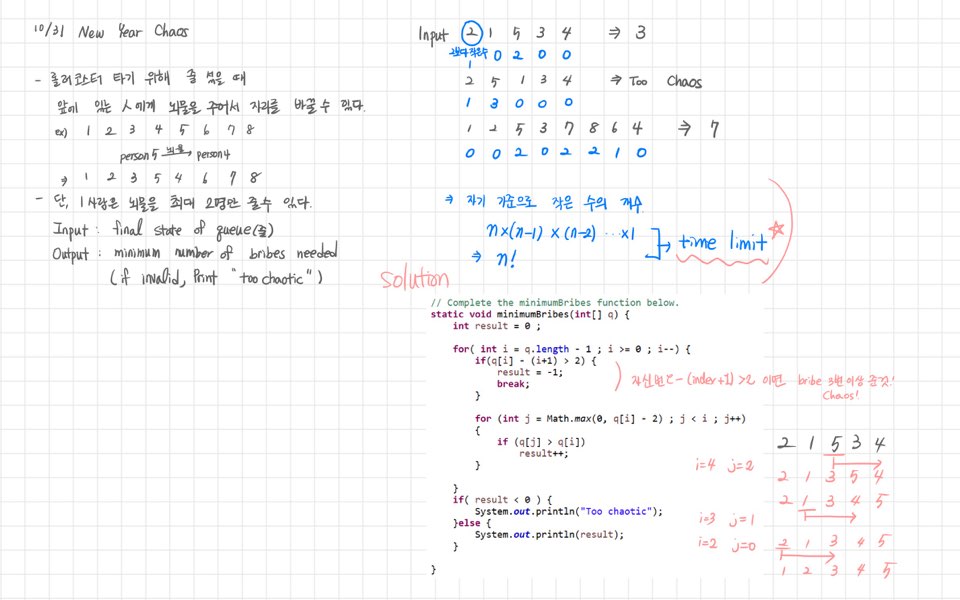 10/31 New Year Chaos
- 롤러코스터 타기 위해 줄 섰을 때
앞에 있는 사람에게 뇌물을 주어서 자리를 바꿀 수 있다.
ex) 1 2 3 4 5 6 7 8
person 5 뇌물→ person 4
⇒ 1 2 3 5 4 6 7 8
- 단, 1사람은 뇌물을 최대 2명만 줄 수 있다.
Input : final state of queue(줄)
Output : minimum number of bribes needed
(if invalid, Print "too chaotic")
Input 2 1 5 3 4 ⇒ 3
2보다 작은수
1 0 2 0 0
2 5 1 3 4 ⇒ Too Chaos
1 3 0 0 0
1 2 5 3 7 8 6 4 ⇒ 7
0 0 2 0 2 2 1 0
⇒ 자기 기준으로 작은 수의 개수
n×(n-1) × (n-2) ⋯ ×1
⇒ n!
→ time limit ☆
solution
// Complete the minimumBribes function below.
static void minimumBribes(int[] q) {
int result = 0 ;
for( int i = q.length - 1 ; i >= 0 ; i--) {
if(q[i] - (i+1) > 2) {
result = -1;
break;
}
자신번호 - (index+1) >2 이면 bribe 3번 이상 준것!
Chaos!
for (int j = Math.max(0, q[i] - 2) ; j < i ; j++)
{
if (q[j] > q[i])
result++;
}
}
if( result < 0 ) {
System.out.println("Too chaotic");
}else {
System.out.println(result);
}
}
2 1 5 3 4
i=4 j=2
2 1 3 5 4
2 1 3 4 5
i=3 j=1
i=2 j=0
2 1 3 4 5
1 2 3 4 5